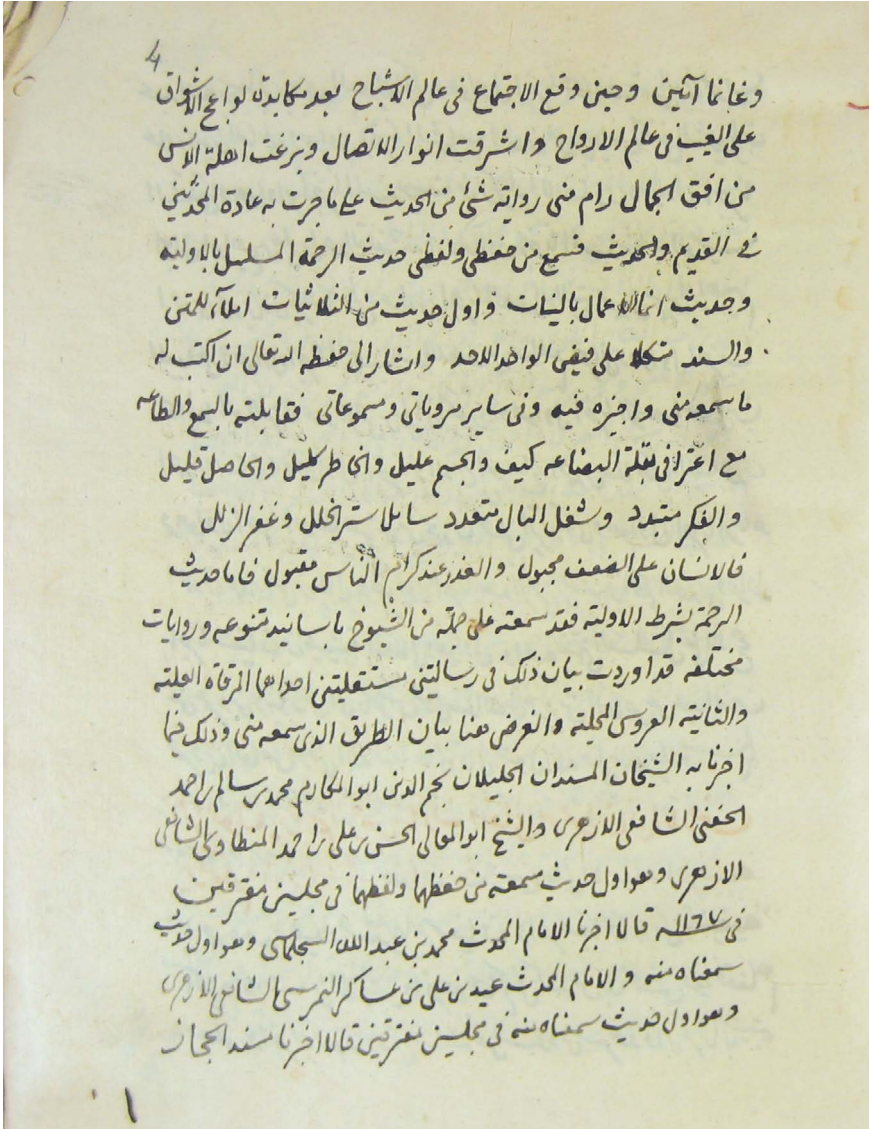 4
وغانما آئين وحين وقع الاجتماع فى عالم الاشباح بعد مكابدة لواعج الاشواق
على الغيب فى عالم الارواح واشرقت انوار الاتصال وبزغت اهلة الانس
من افق الجمال رام منى رواية شئ من الحديث على ما جرت به عادة المحدثين
فى القديم والحديث فسمع من حفظى ولفظى حديث الرحمة المسلسل بالاولية
وحديث انما الاعمال بالنيات واول حديث من الثلاثيات املاء للمتن
والسند متكلا على فيض الواحد الاحد واشار الى حفظه الله تعالى ان اكتب له
ما سمعه منى واجيزه فيه وفى ساير مروياتى ومسموعاتى فقابلته بالسمع والطاعه
مع اعترافى بقلة البضاعه كيف والجسم عليل والخاطر كليل والحاصل قليل
والفكر متبدد وشغل البال متعدد سايلا ستر الخلل وغفر الزلل
فالانسان على الضعف مجبول والعذر عند كرام الناس مقبول فاما حديث
الرحمة بشرط الاولية فقد سمعته على جملة من الشيوخ باسانيد متنوعه وروايات
مختلفه قد اوردت بيان ذلك فى رسالتين مستقليتن احداهما المرقاة العلية
والثانية العروس المجلية والغرض هنا بيان الطريق الذى سمعه منى وذلك فيما
اخبرنا به الشيخان المسندان الجليلان نجم الدين ابو المكارم محمد بن سالم بن احمد
الحفنى الشافعى الازهرى والشيخ ابو المعالى الحسن بن على بن احمد المنطاوى الشافعى
الازهرى وهو اول حديث سمعته من حفظهما ولفظهما فى مجلسين مفترقين
فى سنة ١١٦٧ قالا اخبرنا الامام المحدث محمد بن عبد الله السجلماسى وهو اول حديث
سمعناه منه والامام المحدث عيد بن على بن عساكر النمرسى الشافعى الازهرى
وهو اول حديث سمعناه منه فى مجلسين مفترقين قالا اخبرنا مسند الحجاز